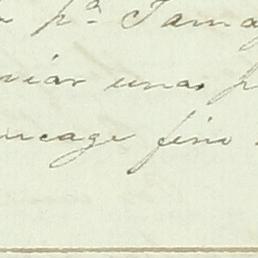 pª Tama
viar unas p
ucage fino